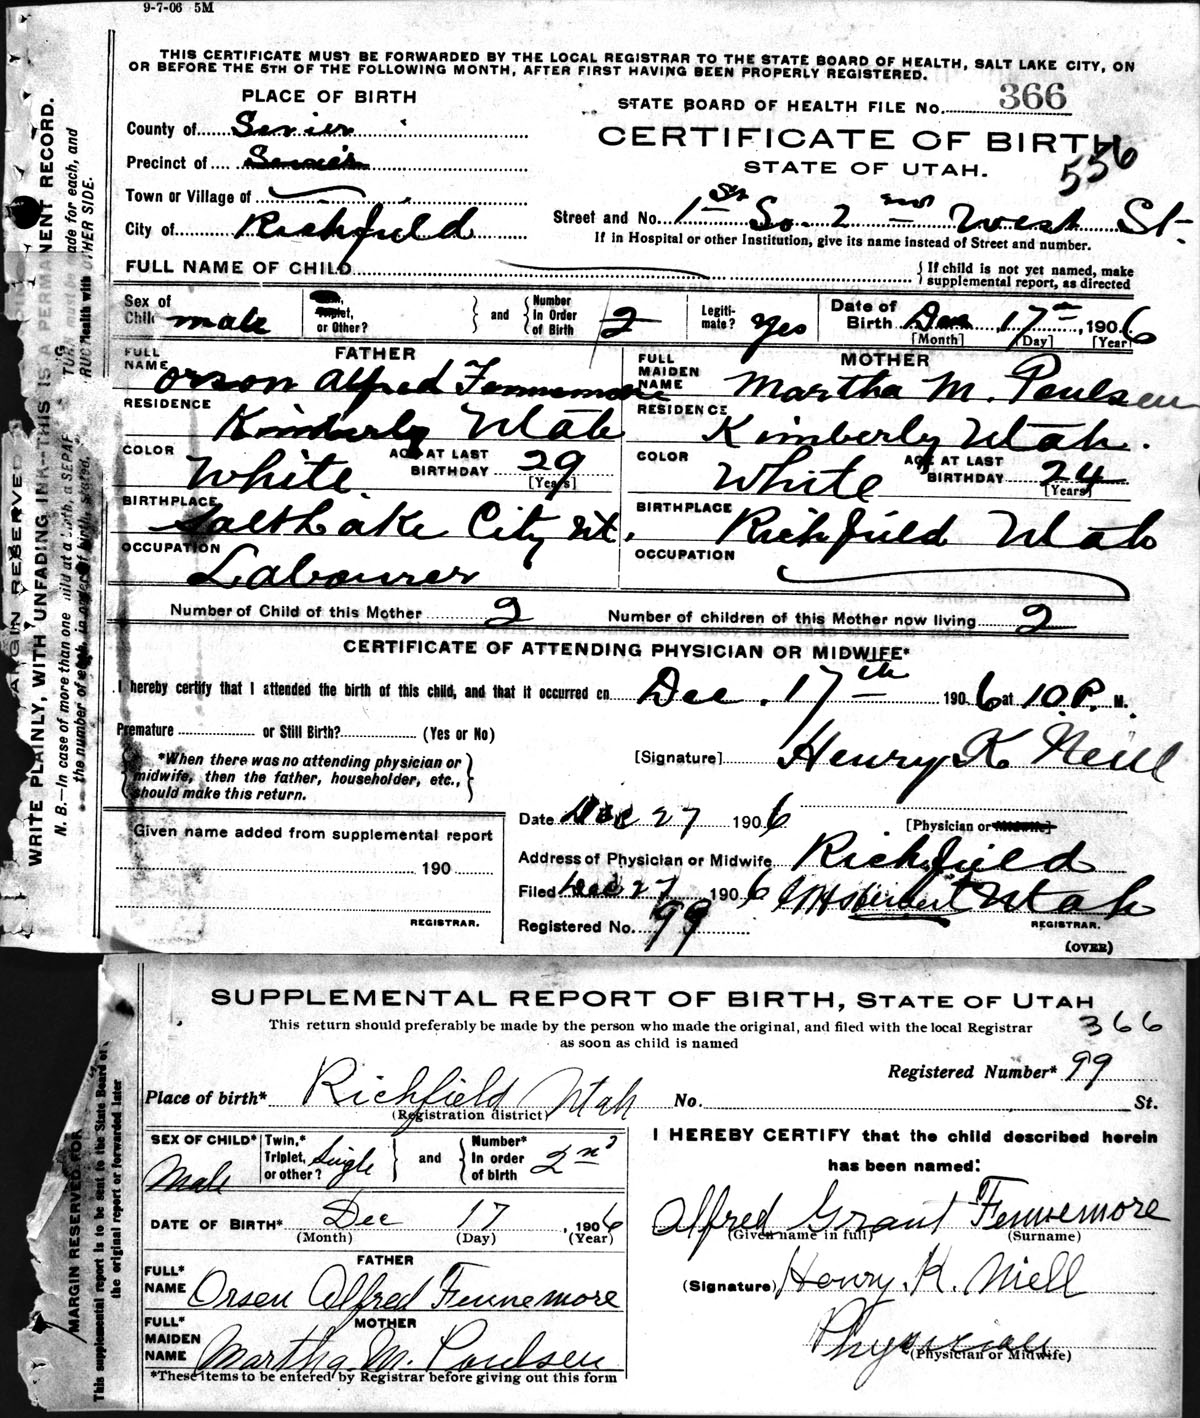 9-7-06 5M
THIS CERTIFICATE MUST BE FORWARDED BY THE LOCAL REGISTRAR TO THE STATE BOARD OF HEALTH, SALT LAKE CITY, ON
OR BEFORE THE 5TH OF THE FOLLOWING MONTH, AFTER FIRST HAVING BEEN PROPERLY REGISTERED.
PLACE OF BIRTH
STATE BOARD OF HEALTH FILE No. 366
County of Sevier
CERTIFICATE OF BIRTH
556
Precinct of Sevier
STATE OF UTAH.
Town or Village of
Street and No. 1st So. 2nd West St.
City of Richfield
If in Hospital or other Institution, give its name instead of Street and number.
FULL NAME OF CHILD
If child is not yet named, make
supplemental report, as directed
Sex of Child male
Triplet, or Other?
and
Number In Order of Birth 2
Legitimate? Yes
Date of Birth Dec 17th, 1906
[Month] [Day] [Year]
FATHER
MOTHER
FULL NAME Orson Alfred Fennemore
FULL MAIDEN NAME Martha M. Poulsen
RESIDENCE Kimberly Utah
RESIDENCE Kimberly Utah.
COLOR White
AGE AT LAST BIRTHDAY 29 [Years]
COLOR White
AGE AT LAST BIRTHDAY 24 [Years]
BIRTHPLACE Salt Lake City Ut.
BIRTHPLACE Richfield Utah
OCCUPATION Labourer
OCCUPATION
Number of Child of this Mother 2
Number of children of this Mother now living 2
CERTIFICATE OF ATTENDING PHYSICIAN OR MIDWIFE*
I hereby certify that I attended the birth of this child, and that it occurred on Dec. 17th 1906 at 10 P. M.
Premature or Still Birth? (Yes or No)
[Signature] Henry K Neill
*When there was no attending physician or
midwife, then the father, householder, etc.,
should make this return.
Date Dec 27 1906
[Physician or Midwife]
Given name added from supplemental report
190
REGISTRAR.
Address of Physician or Midwife Richfield
Utah
Filed Dec 27 1906
REGISTRAR.
Registered No. 99
(OVER)
MARGIN RESERVED
WRITE PLAINLY, WITH UNFADING INK--THIS IS A PERMANENT RECORD.
N. B.--In case of more than one child at a birth, a SEPARATE
the number of each, in order of birth, stated.
SUPPLEMENTAL REPORT OF BIRTH, STATE OF UTAH
This return should preferably be made by the person who made the original, and filed with the local Registrar
as soon as child is named
366
Registered Number* 99
Place of birth* Richfield Utah No. St.
(Registration district)
SEX OF CHILD* Male
Twin,* Triplet, or other? Single
and
Number* In order of birth 2nd
I HEREBY CERTIFY that the child described herein
has been named:
Alfred Grant Fennemore
(Given name in full) (Surname)
DATE OF BIRTH* Dec 17, 1906
(Month) (Day) (Year)
FATHER
FULL* NAME Orsen Alfred Fennemore
(Signature) Henry. K. Niell
MOTHER
FULL* MAIDEN NAME Martha. M. Poulsen
Physician
(Physician or Midwife)
*These items to be entered by Registrar before giving out this form
MARGIN RESERVED FOR
This supplemental report is to be sent to the State Board of
the original report or forwarded later